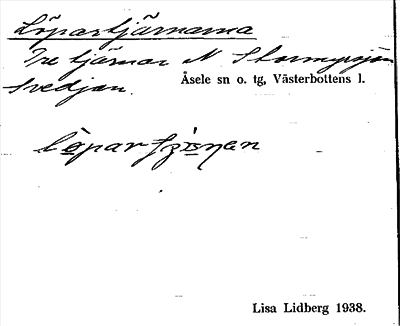 Löpartjärnarna
Tre tjärnar N Stormyrsjön
Svedjan.
Åsele sn o. tg, Västerbottens l.
Lisa Lidberg 1938.